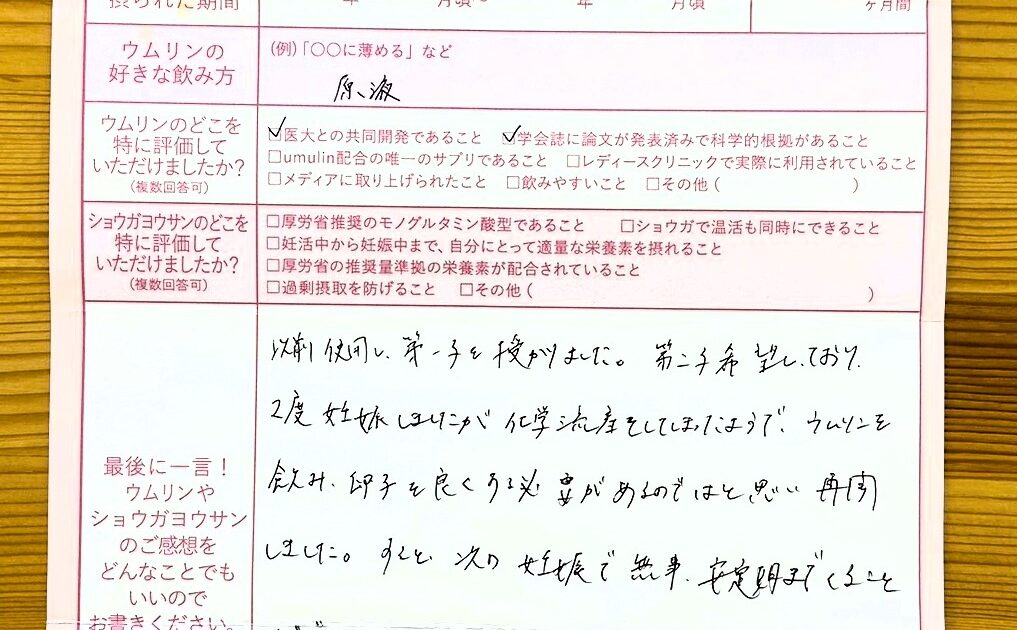 摂られた期間
年 月頃〜 年 月頃
ヶ月間
ウムリンの
好きな飲み方
(例)「〇〇に薄める」など
原液
ウムリンのどこを
特に評価して
いただけましたか?
(複数回答可)
☑医大との共同開発であること ☑学会誌に論文が発表済みで科学的根拠があること
□umulin配合の唯一のサプリであること □レディースクリニックで実際に利用されていること
□メディアに取り上げられたこと □飲みやすいこと □その他( )
ショウガヨウサンのどこを
特に評価して
いただけましたか?
(複数回答可)
□厚労省推奨のモノグルタミン酸型であること □ショウガで温活も同時にできること
□妊活中から妊娠中まで、自分にとって適量な栄養素を摂れること
□厚労省の推奨量準拠の栄養素が配合されていること
□過剰摂取を防げること □その他( )
最後に一言!
ウムリンや
ショウガヨウサン
のご感想を
どんなことでも
いいので
お書きください。
以前使用し、第一子を授かりました。第二子希望しており、
2度妊娠しましたが化学流産をしてしまったようで、ウムリンを
飲み、卵子を良くする必要があるのではと思い再開
しました。すると、次の妊娠で無事、安定期までくること